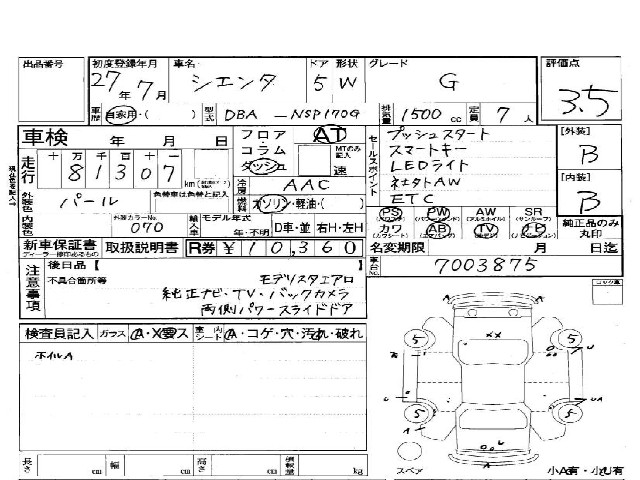 出品番号
初度登録年月 27年 7月
車名 シエンタ
ドア 形状 5 W
グレード G
評価点 3.5
車歴 自家用・( )
型式 DBA-NSP170G
排気量 1500 cc
定員 7人
車検 年 月 日
フロア AT
コラム
ダッシュ 速
セールスポイント
プッシュスタート
スマートキー
LEDライト
ETC
[外装] B
[内装] B
走行 十万千百十 81307 km
冷房 AAC
外装色 パール 色替車は色替と記入
燃料 ガソリン・軽油・( )
PS PW AW SR
カワ AB TV ナビ
純正品のみ丸印
内装色
外装カラーNo. 070
輸入車 モデル年式 年・不明 D車・並 右H・左H
新車保証書 取扱説明書 R券 ¥10,360
名変期限 月 日迄
注意事項
後日品【
不具合箇所等
モデリスタエアロ
純正ナビ・TV・バックカメラ
両側パワースライドドア
車台No. 7003875
検査員記入 ガラス A・X要ス 室内シート A・コゲ・穴・汚れ・破れ
ホイルA
5 5
5 5
XX
U
UA
A
スペア
小A有・小U有
長さ cm 幅 cm 高さ cm 積載量 kg